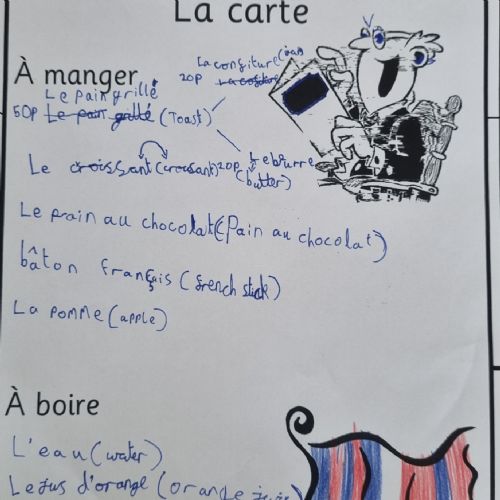 La carte
À manger
La confiture (jam)
20p
Le pain grillé
50p Le pain grillé (Toast)
Le croissant (croissant) 20p Le burre
(butter)
Le pain au chocolat (Pain au chocolat)
bâton français (french stick)
La pomme (apple)
À boire
L'eau (water)
Le jus d'orange (orange juice)